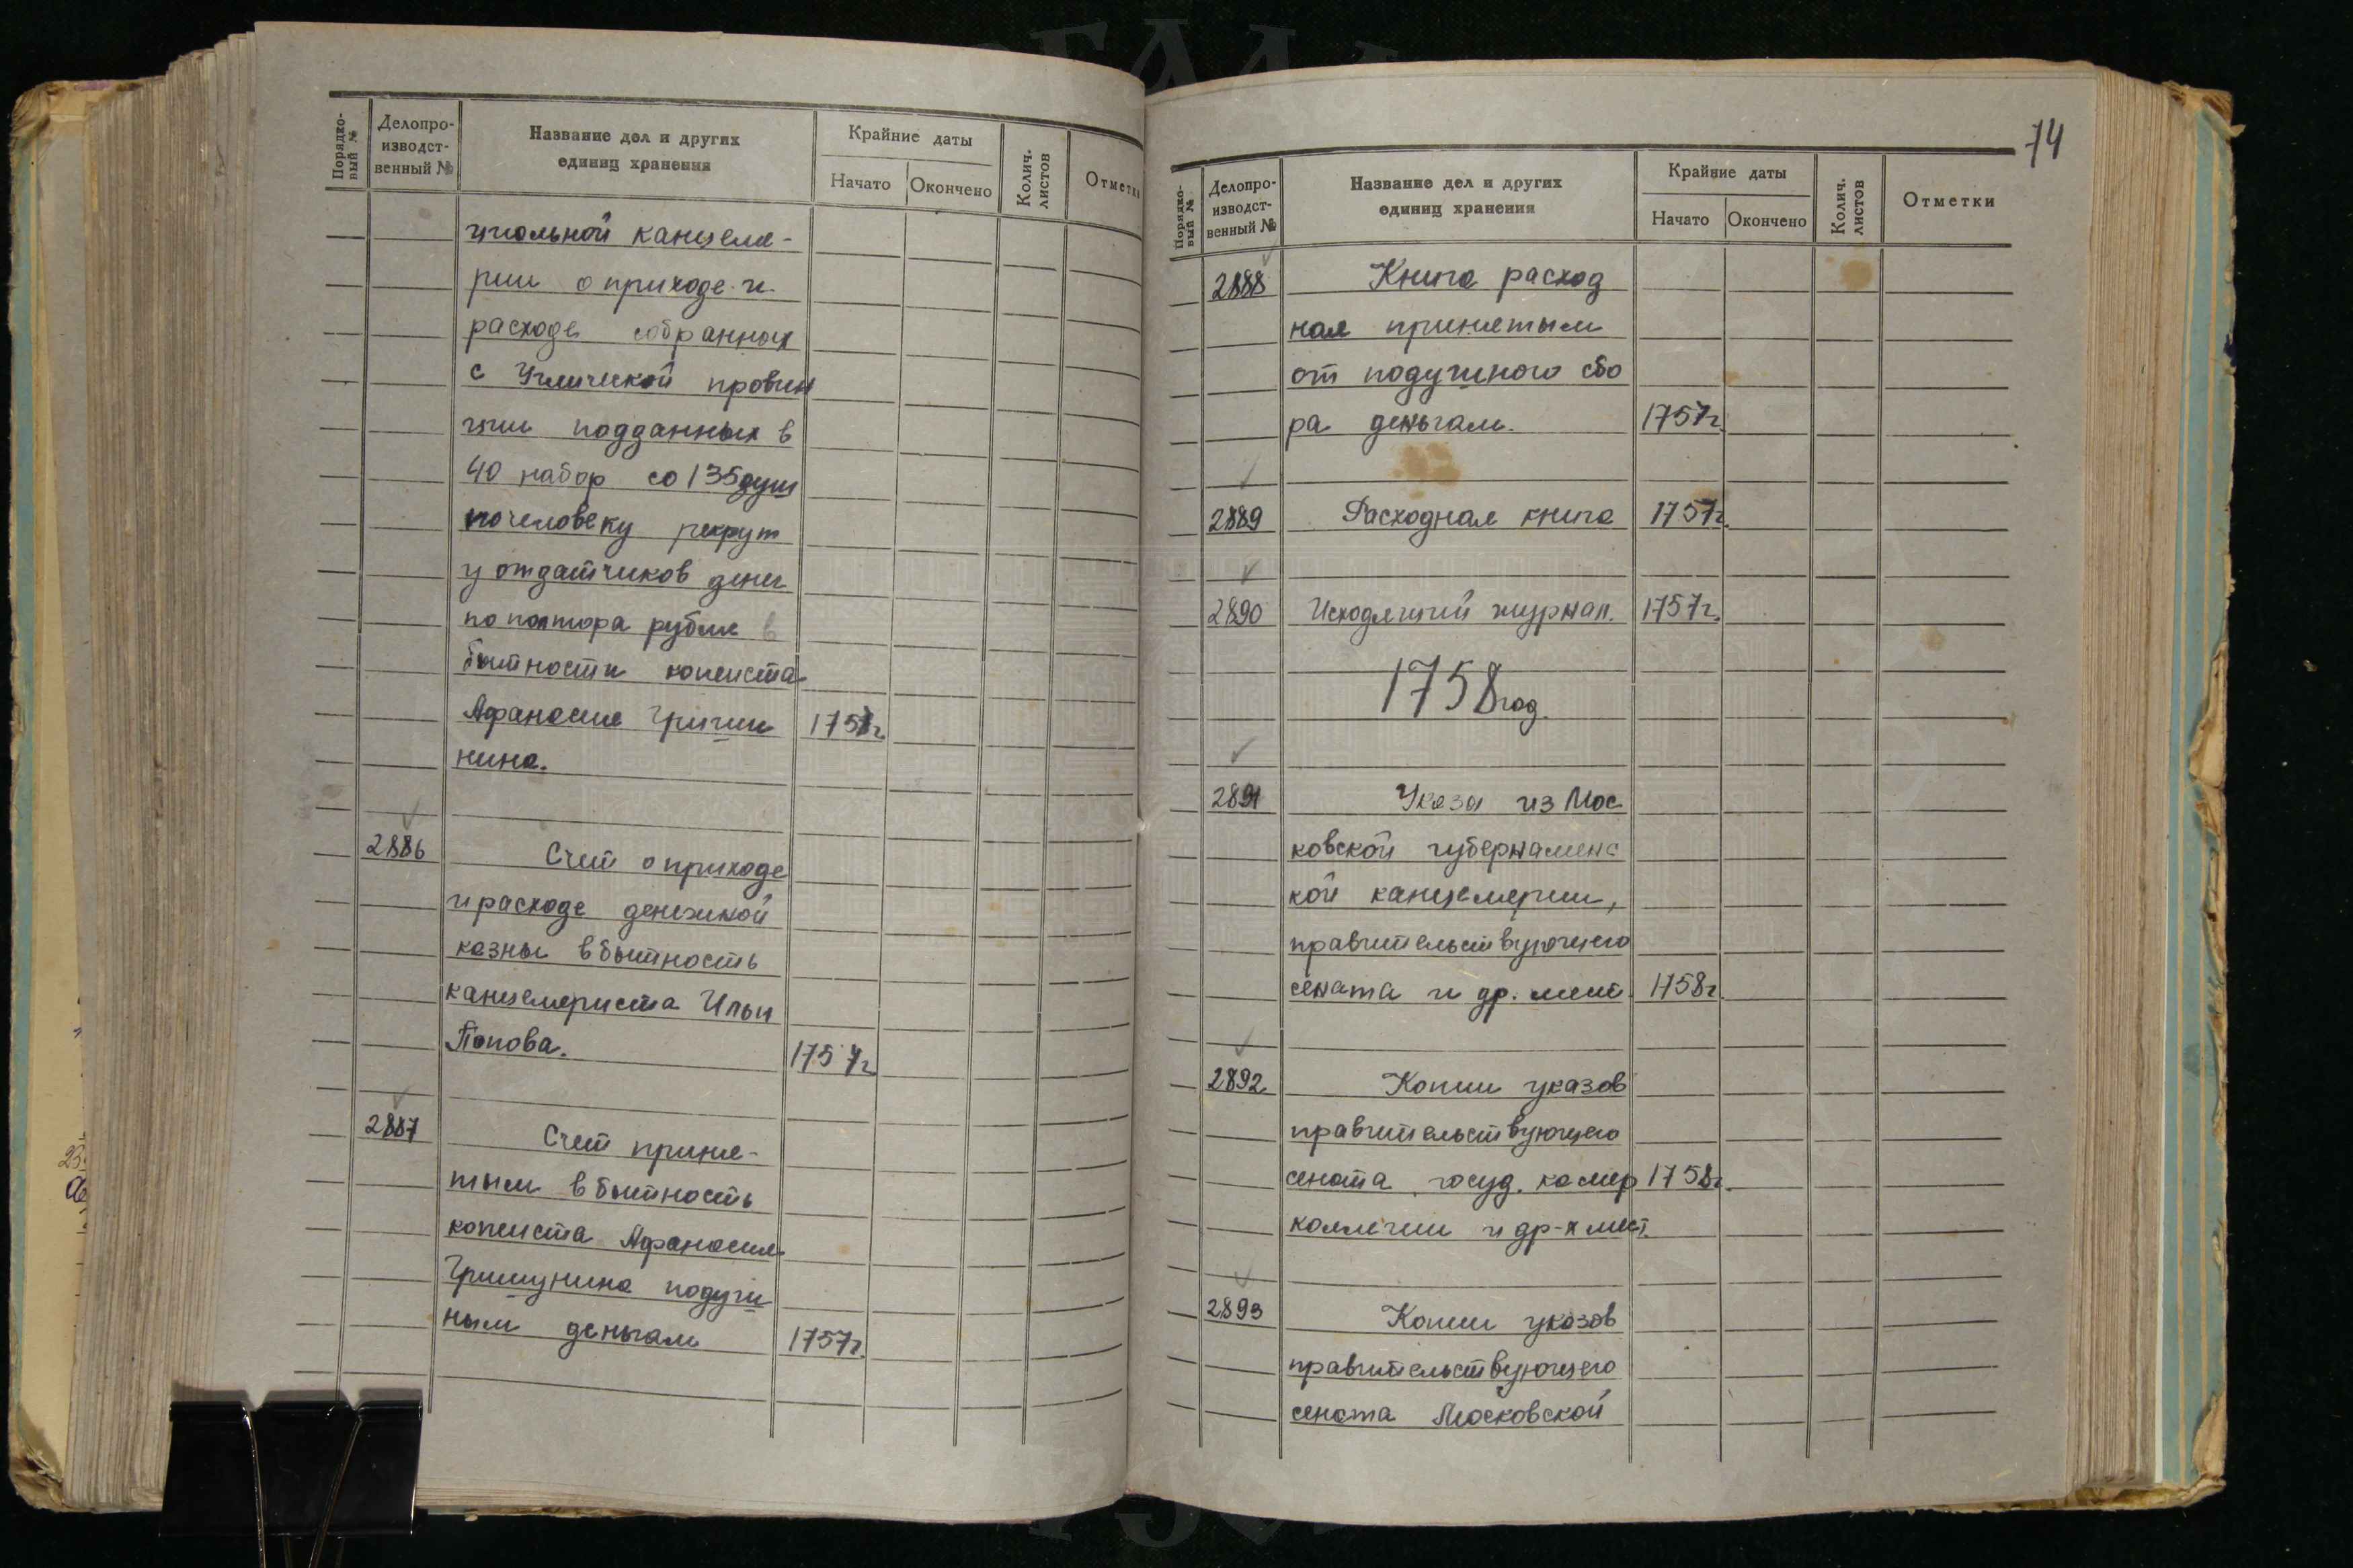 Порядко-
вый №
Делопро-
изводст-
венный №
Название дел и других
единиц хранения
Крайние даты
Начато
Окончено
Колич.
листов
Отметки
циальной канцеля-
рии о приходе и
расходе собранных
с Углической провин
ции подданных в
40 набор со 135 душ
по человеку рекрут
у отдатчиков денег
по полтора рубля в
бытности копеиста
Афанасия Гриши 1757г
нина.
2886 Счет о приходе
и расходе денежной
казны в бытность
канцеляриста Ильи
Попова. 1757г
2887 Счет приня-
тым в бытность
копеиста Афанасия
Гришунина подуш
ным деньгам 1757г.
74
Порядко-
вый №
Делопро-
изводст-
венный №
Название дел и других
единиц хранения
Крайние даты
Начато
Окончено
Колич.
листов
Отметки
2888 Книга расход
ная принятым
от подушного сбо
ра деньгам. 1757г.
2889 Расходная книга 1757г.
2890 Исходящий журнал. 1757г.
1758 год.
2891 Указы из Мос
ковской губернаменс
кой канцелярии,
правительствующего
сената и др. мест. 1758г
2892 Копии указов
правительствующего
сената госуд. камер 1758г.
коллегии и др-х мест.
2893 Копии указов
правительствующего
сената Московской